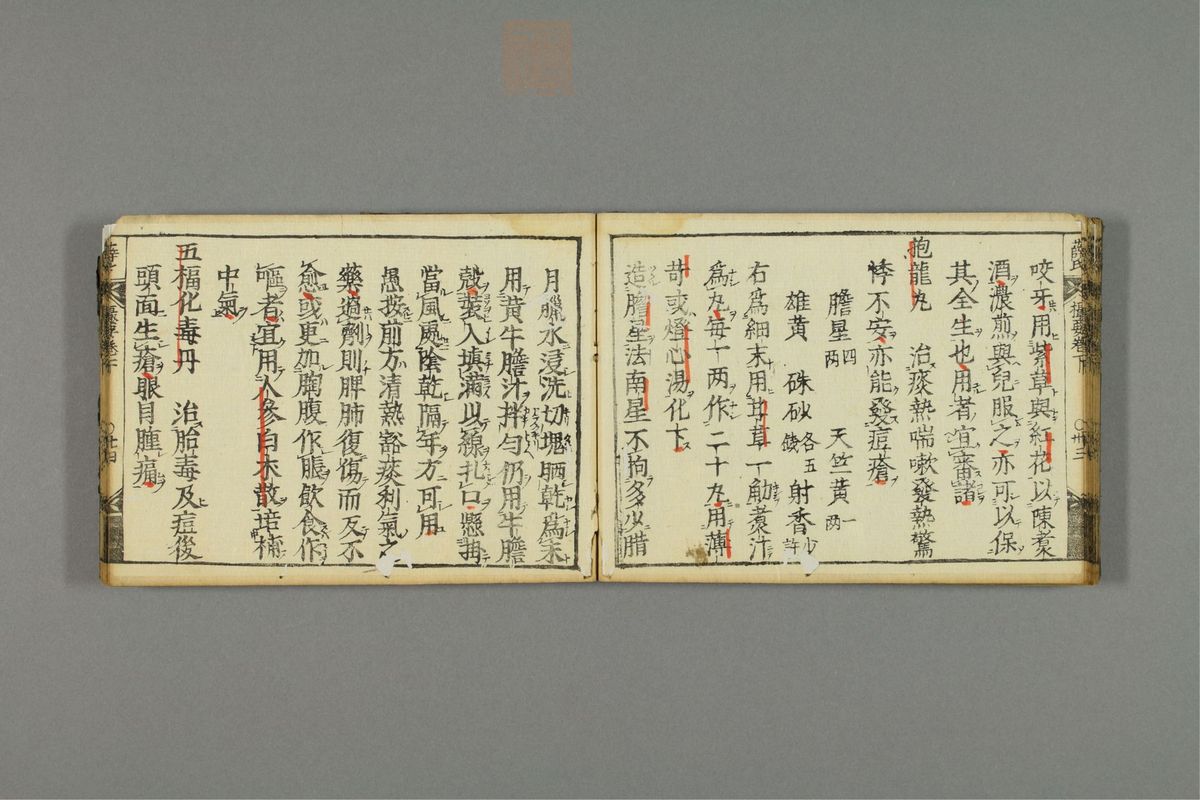 咬牙用紫草與紅花以陳煮
酒濃煎與兒服之亦可以保
其全生也用者宜審諸
抱龍丸　治痰熱喘嗽發熱驚
悸不安亦能發痘瘡
膽星四両　天竺黄一両
雄黄　硃砂各五錢　射香少許
右爲細末用甘草一觔煮汁
爲丸毎一両作二十丸用薄
苛或燈心湯化下
造膽星法南星不拘多少腊
月臘水浸洗切塊晒乾爲末
用黄牛膽汁拌匀仍用牛膽
殻装入填滿以線扎口懸掛
當風處陰乾隔年方可用
愚按前方清熱豁痰利氣之
藥過劑則脾肺復傷而反不
愈或更加胸腹作脹飲食作
嘔者宜用人參白木散培補
中氣
五福化毒丹　治胎毒及痘後
頭面生瘡眼目腫痛